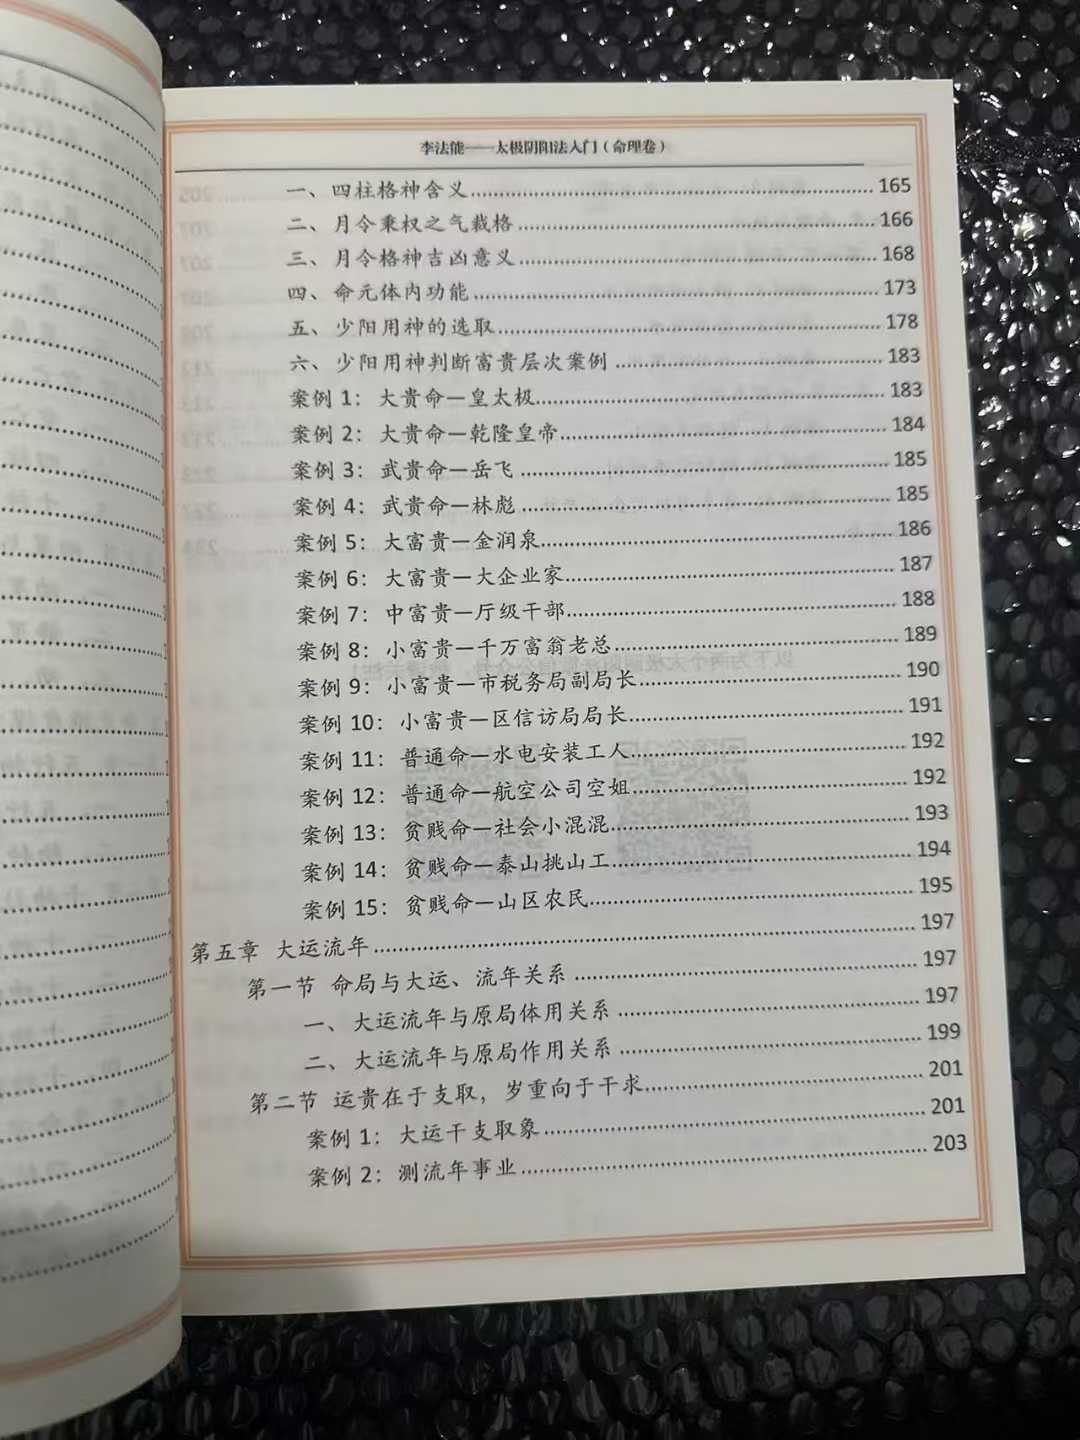 李法能——太极阴阳法入门（命理卷）
一、四柱格神含义 165
二、月令秉权之气载格 166
三、月令格神吉凶意义 168
四、命元体内功能 173
五、少阳用神的选取 178
六、少阳用神判断富贵层次案例 183
案例 1：大贵命—皇太极 183
案例 2：大贵命—乾隆皇帝 184
案例 3：武贵命—岳飞 185
案例 4：武贵命—林彪 185
案例 5：大富贵—金润泉 186
案例 6：大富贵—大企业家 187
案例 7：中富贵—厅级干部 188
案例 8：小富贵—千万富翁老总 189
案例 9：小富贵—市税务局副局长 190
案例 10：小富贵—区信访局局长 191
案例 11：普通命—水电安装工人 192
案例 12：普通命—航空公司空姐 192
案例 13：贫贱命—社会小混混 193
案例 14：贫贱命—泰山挑山工 194
案例 15：贫贱命—山区农民 195
第五章 大运流年 197
第一节 命局与大运、流年关系 197
一、大运流年与原局体用关系 197
二、大运流年与原局作用关系 199
第二节 运贵在于支取，岁重向于干求 201
案例 1：大运干支取象 201
案例 2：测流年事业 203